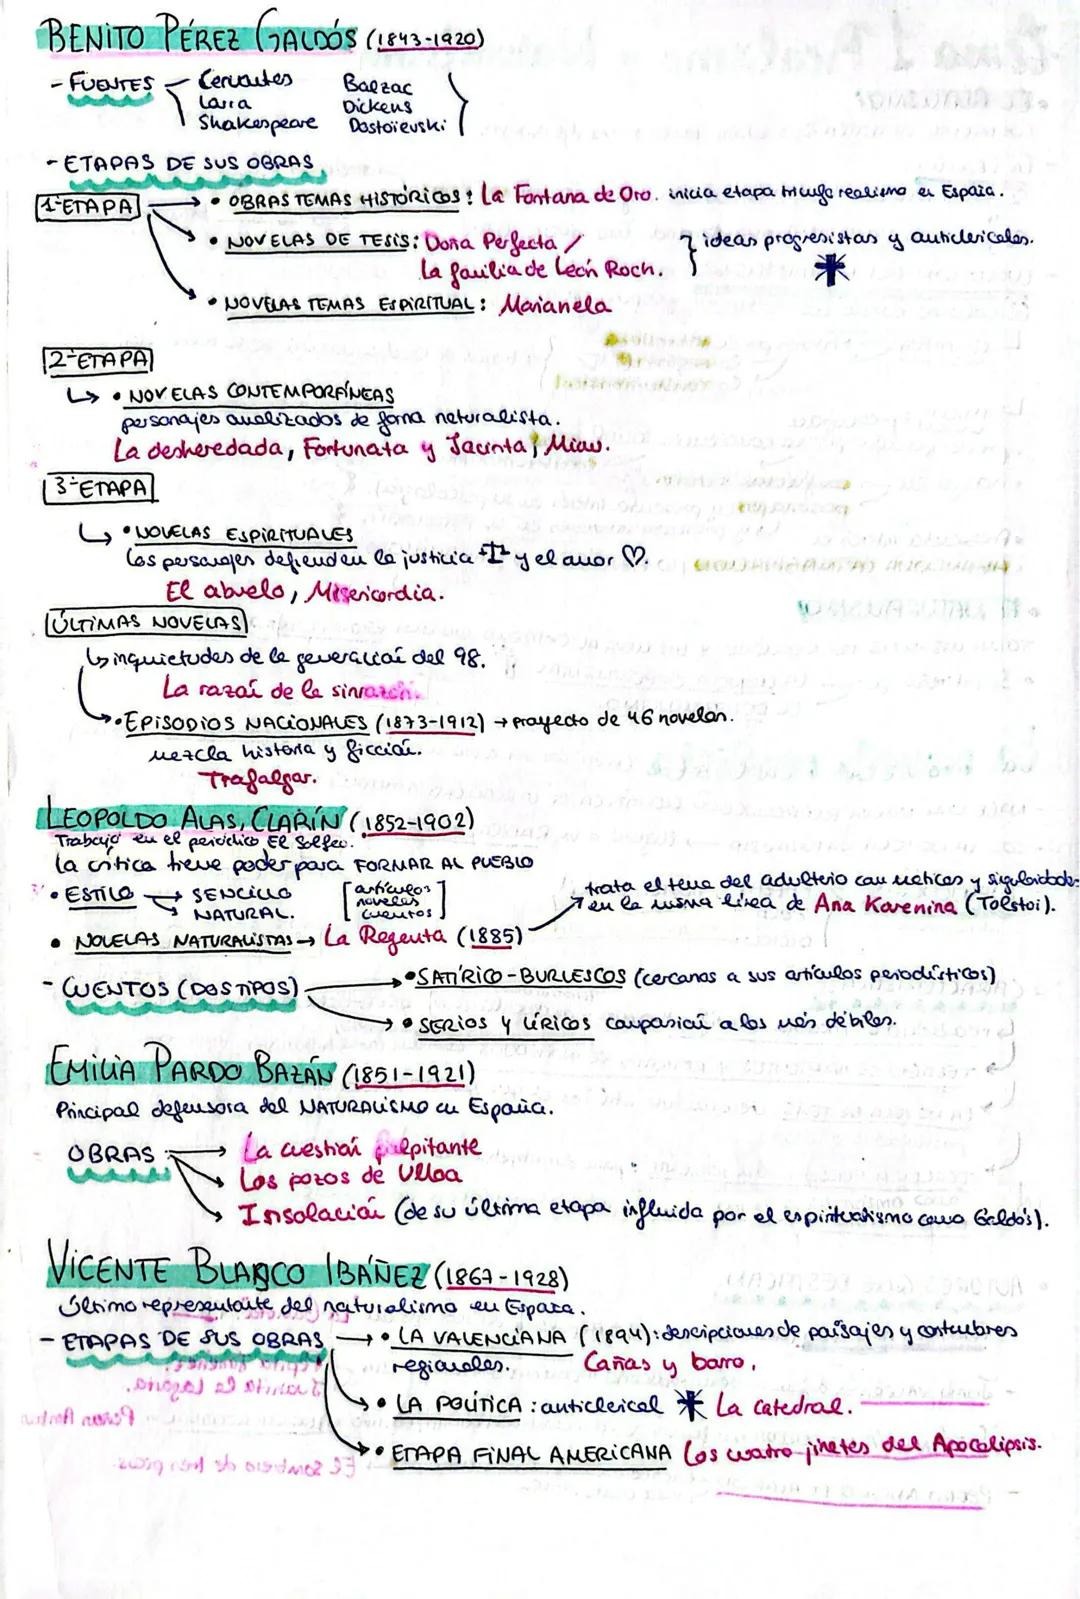 BENITO PÉREZ GALDÓS (1843-1920)
- FUENTES Cervantes Balzac
Larra Dickens
Shakespeare Dostoïevski
- ETAPAS DE SUS OBRAS
1ªETAPA • OBRAS TEMAS HISTÓRICOS: La Fontana de Oro. inicia etapa triunfo realismo en España.
• NOVELAS DE TESIS: Doña Perfecta / ideas progresistas y anticlericales.
La familia de León Roch.
• NOVELAS TEMAS ESPIRITUAL: Marianela
2ªETAPA
• NOVELAS CONTEMPORÁNEAS
personajes analizados de forma naturalista.
La desheredada, Fortunata y Jacinta, Miau.
3ªETAPA
• NOVELAS ESPIRITUALES
Los personajes defienden la justicia y el amor ♡.
El abuelo, Misericordia.
ÚLTIMAS NOVELAS
↳ inquietudes de la generación del 98.
La razón de la sinrazón.
• EPISODIOS NACIONALES (1873-1912) → proyecto de 46 novelas.
mezcla historia y ficción.
Trafalgar.
LEOPOLDO ALAS, CLARÍN (1852-1902)
Trabajó en el periódico El Solfeo.
La crítica tiene poder para FORMAR AL PUEBLO
• ESTILO → SENCILLO [artículos
NATURAL. novelas
cuentos]
trata el tema del adulterio con matices y singularidades
en la misma línea de Ana Karenina (Tolstoi).
• NOVELAS NATURALISTAS → La Regenta (1885)
- CUENTOS (DOS TIPOS) • SATÍRICO-BURLESCOS (cercanos a sus artículos periodísticos)
• SERIOS Y LÍRICOS compasión a los más débiles.
EMILIA PARDO BAZÁN (1851-1921)
Principal defensora del NATURALISMO en España.
OBRAS → La cuestión palpitante
Los pozos de Ulloa
Insolación (de su última etapa influida por el espiritualismo como Galdós).
VICENTE BLANCO IBÁÑEZ (1867-1928)
Último representante del naturalismo en España.
- ETAPAS DE SUS OBRAS → • LA VALENCIANA (1894): descripciones de paisajes y costumbres
regionales. Cañas y barro.
• LA POLÍTICA: anticlerical La catedral.
• ETAPA FINAL AMERICANA Los cuatro jinetes del Apocalipsis.